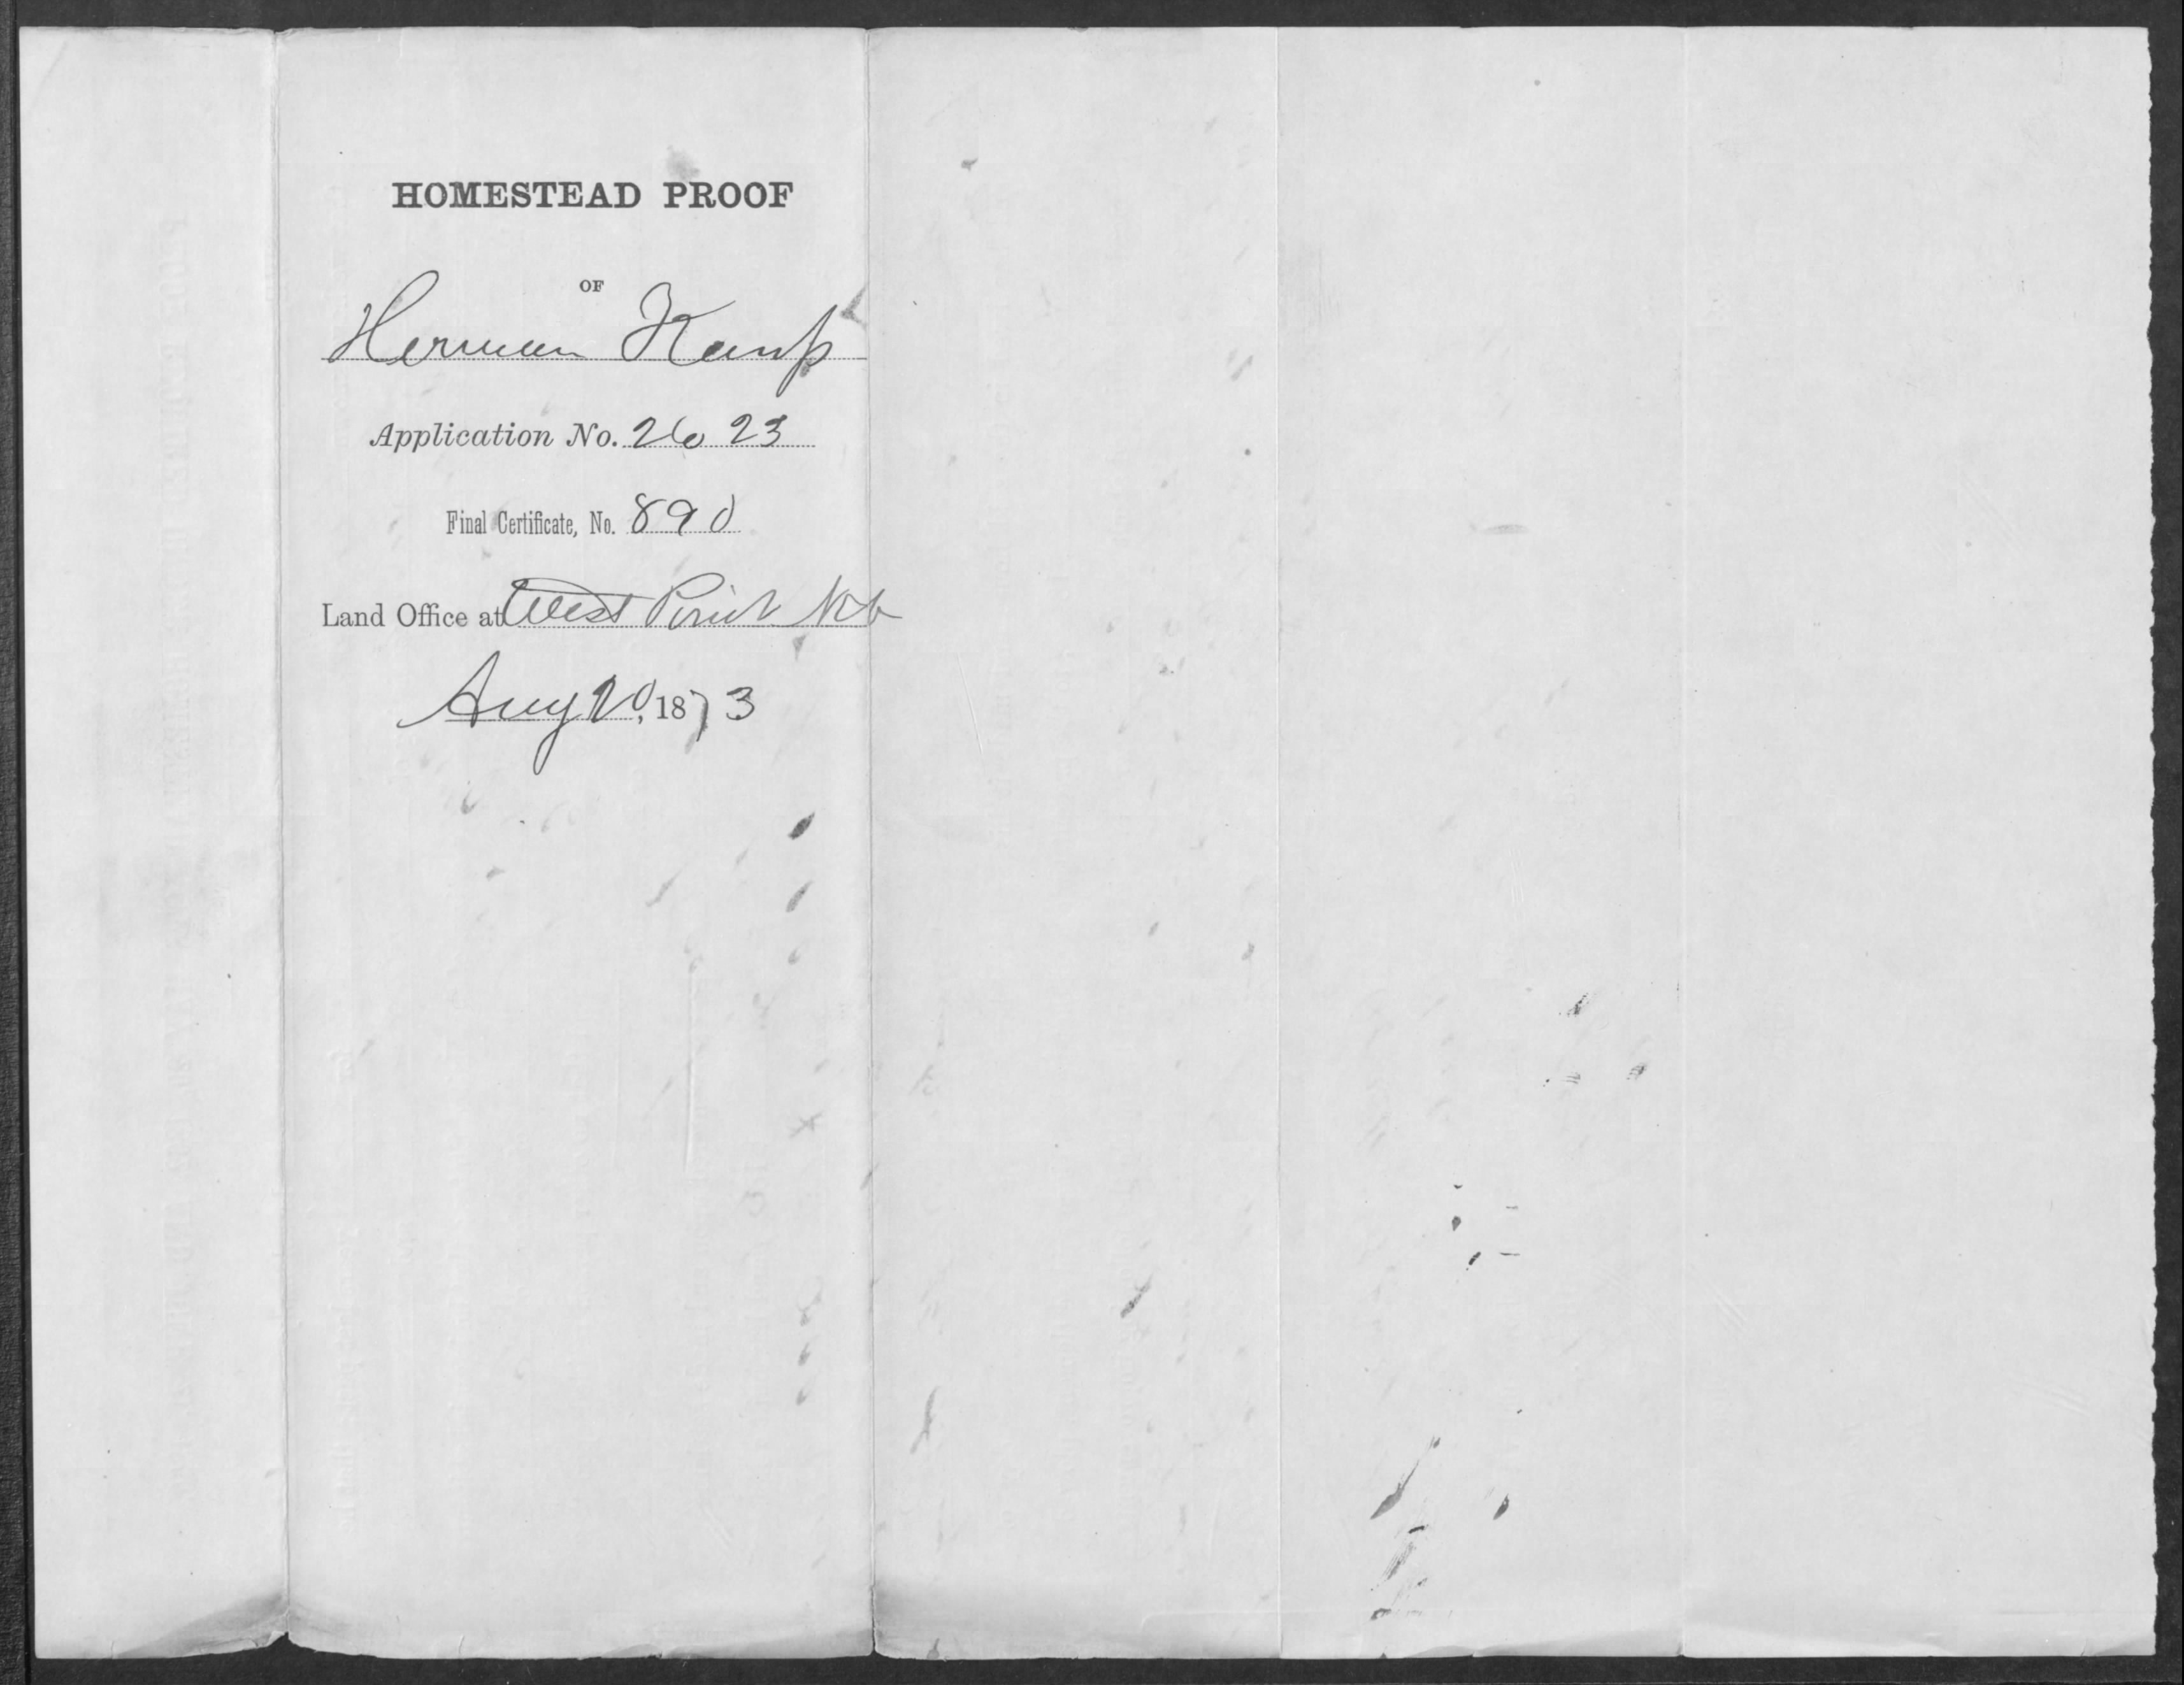 HOMESTEAD PROOF
OF
Herman Kamp
Application No. 2623
Final Certificate, No. 890
Land Office at West Point Neb
Aug 20, 1873